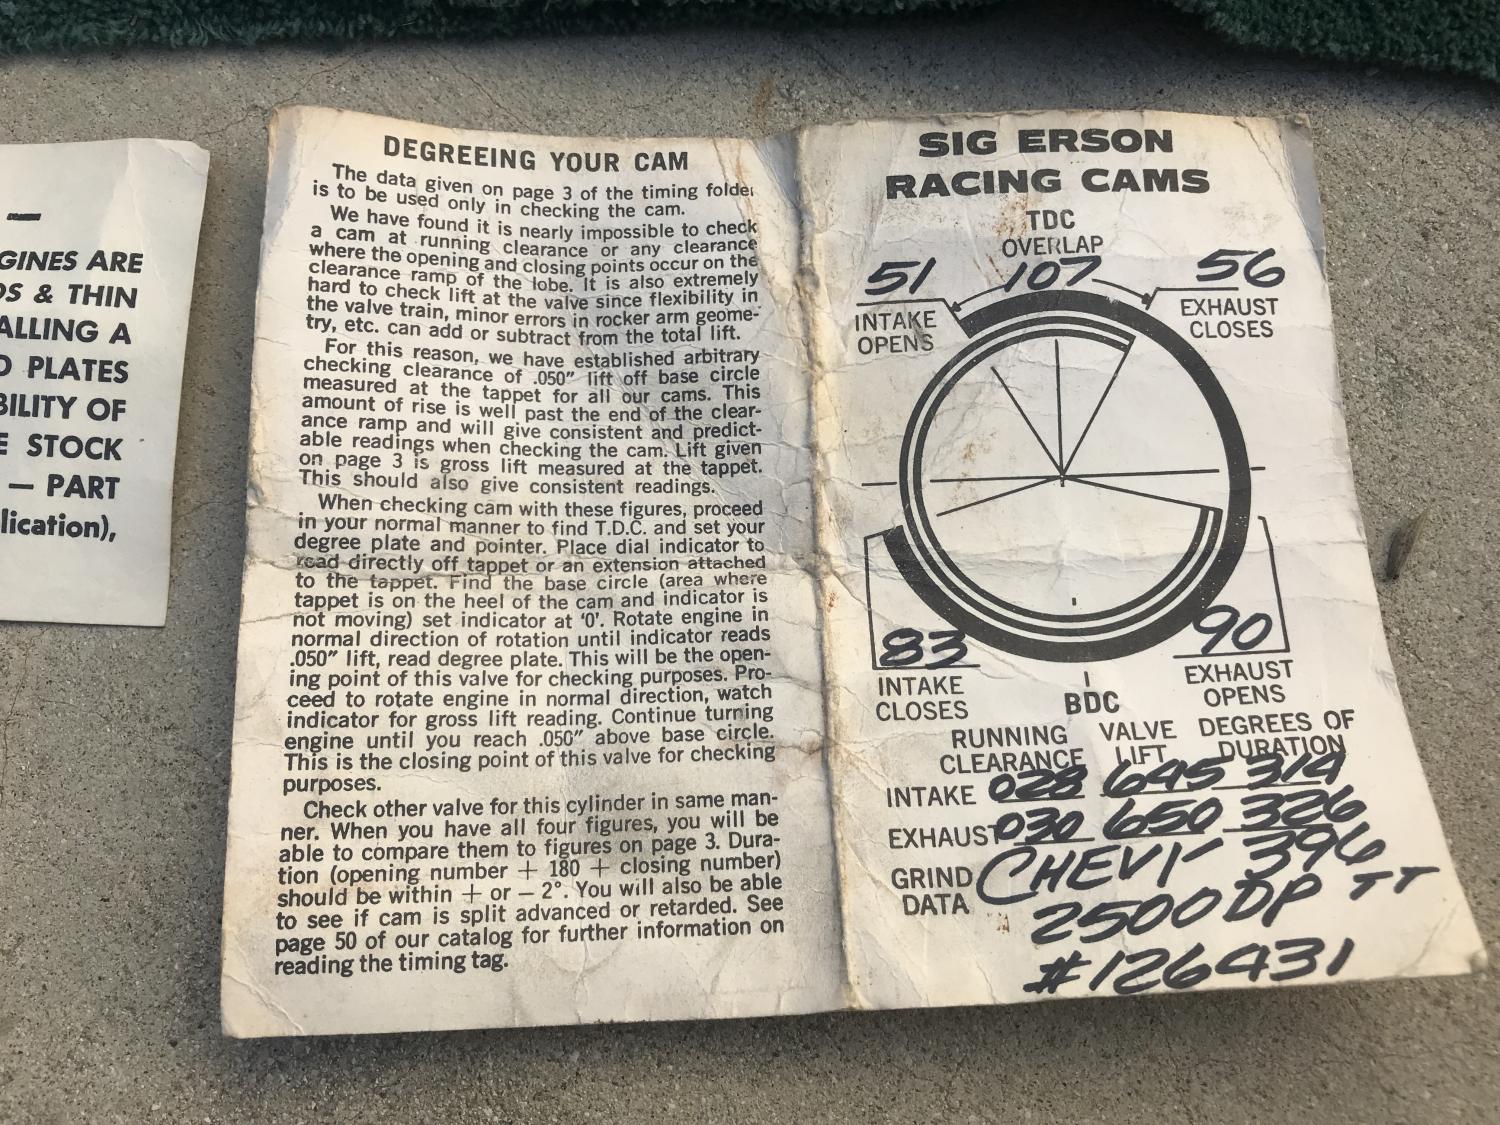 GINES ARE
DS & THIN
ALLING A
D PLATES
BILITY OF
E STOCK
— PART
lication),
DEGREEING YOUR CAM
The data given on page 3 of the timing folder
is to be used only in checking the cam.
We have found it is nearly impossible to check
a cam at running clearance or any clearance
where the opening and closing points occur on the
clearance ramp of the lobe. It is also extremely
hard to check lift at the valve since flexibility in
the valve train, minor errors in rocker arm geome-
try, etc. can add or subtract from the total lift.
For this reason, we have established arbitrary
checking clearance of .050″ lift off base circle
measured at the tappet for all our cams. This
amount of rise is well past the end of the clear-
ance ramp and will give consistent and predict-
able readings when checking the cam. Lift given
on page 3 is gross lift measured at the tappet.
This should also give consistent readings.
When checking cam with these figures, proceed
in your normal manner to find T.D.C. and set your
degree plate and pointer. Place dial indicator to
read directly off tappet or an extension attached
to the tappet. Find the base circle (area where
tappet is on the heel of the cam and indicator is
not moving) set indicator at ‘0’. Rotate engine in
normal direction of rotation until indicator reads
.050″ lift, read degree plate. This will be the open-
ing point of this valve for checking purposes. Pro-
ceed to rotate engine in normal direction, watch
indicator for gross lift reading. Continue turning
engine until you reach .050″ above base circle.
This is the closing point of this valve for checking
purposes.
Check other valve for this cylinder in same man-
ner. When you have all four figures, you will be
able to compare them to figures on page 3. Dura-
tion (opening number + 180 + closing number)
should be within + or − 2°. You will also be able
to see if cam is split advanced or retarded. See
page 50 of our catalog for further information on
reading the timing tag.
SIG ERSON
RACING CAMS
TDC
OVERLAP
51 107 56
INTAKE
OPENS
EXHAUST
CLOSES
83 90
INTAKE
CLOSES
BDC
EXHAUST
OPENS
RUNNING
CLEARANCE
VALVE
LIFT
DEGREES OF
DURATION
INTAKE 028 645 314
EXHAUST 030 650 326
GRIND
DATA
CHEVY 396
2500 DP TT
#126431